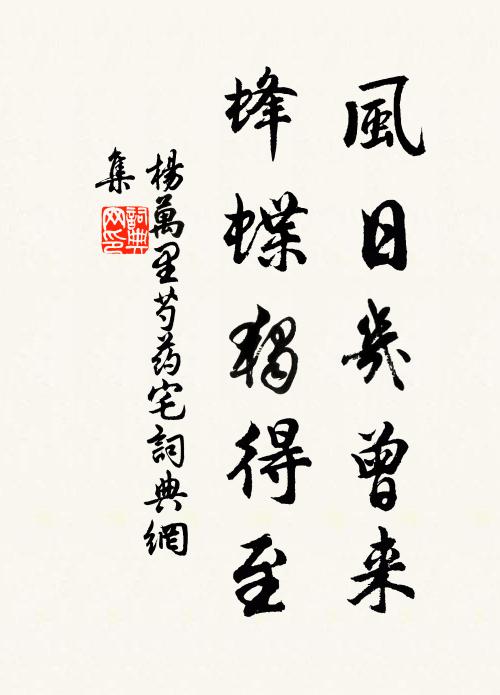 風日幾曾来
蜂蝶獨得至
楊萬里芍药宅詞典網
集
詞典网印